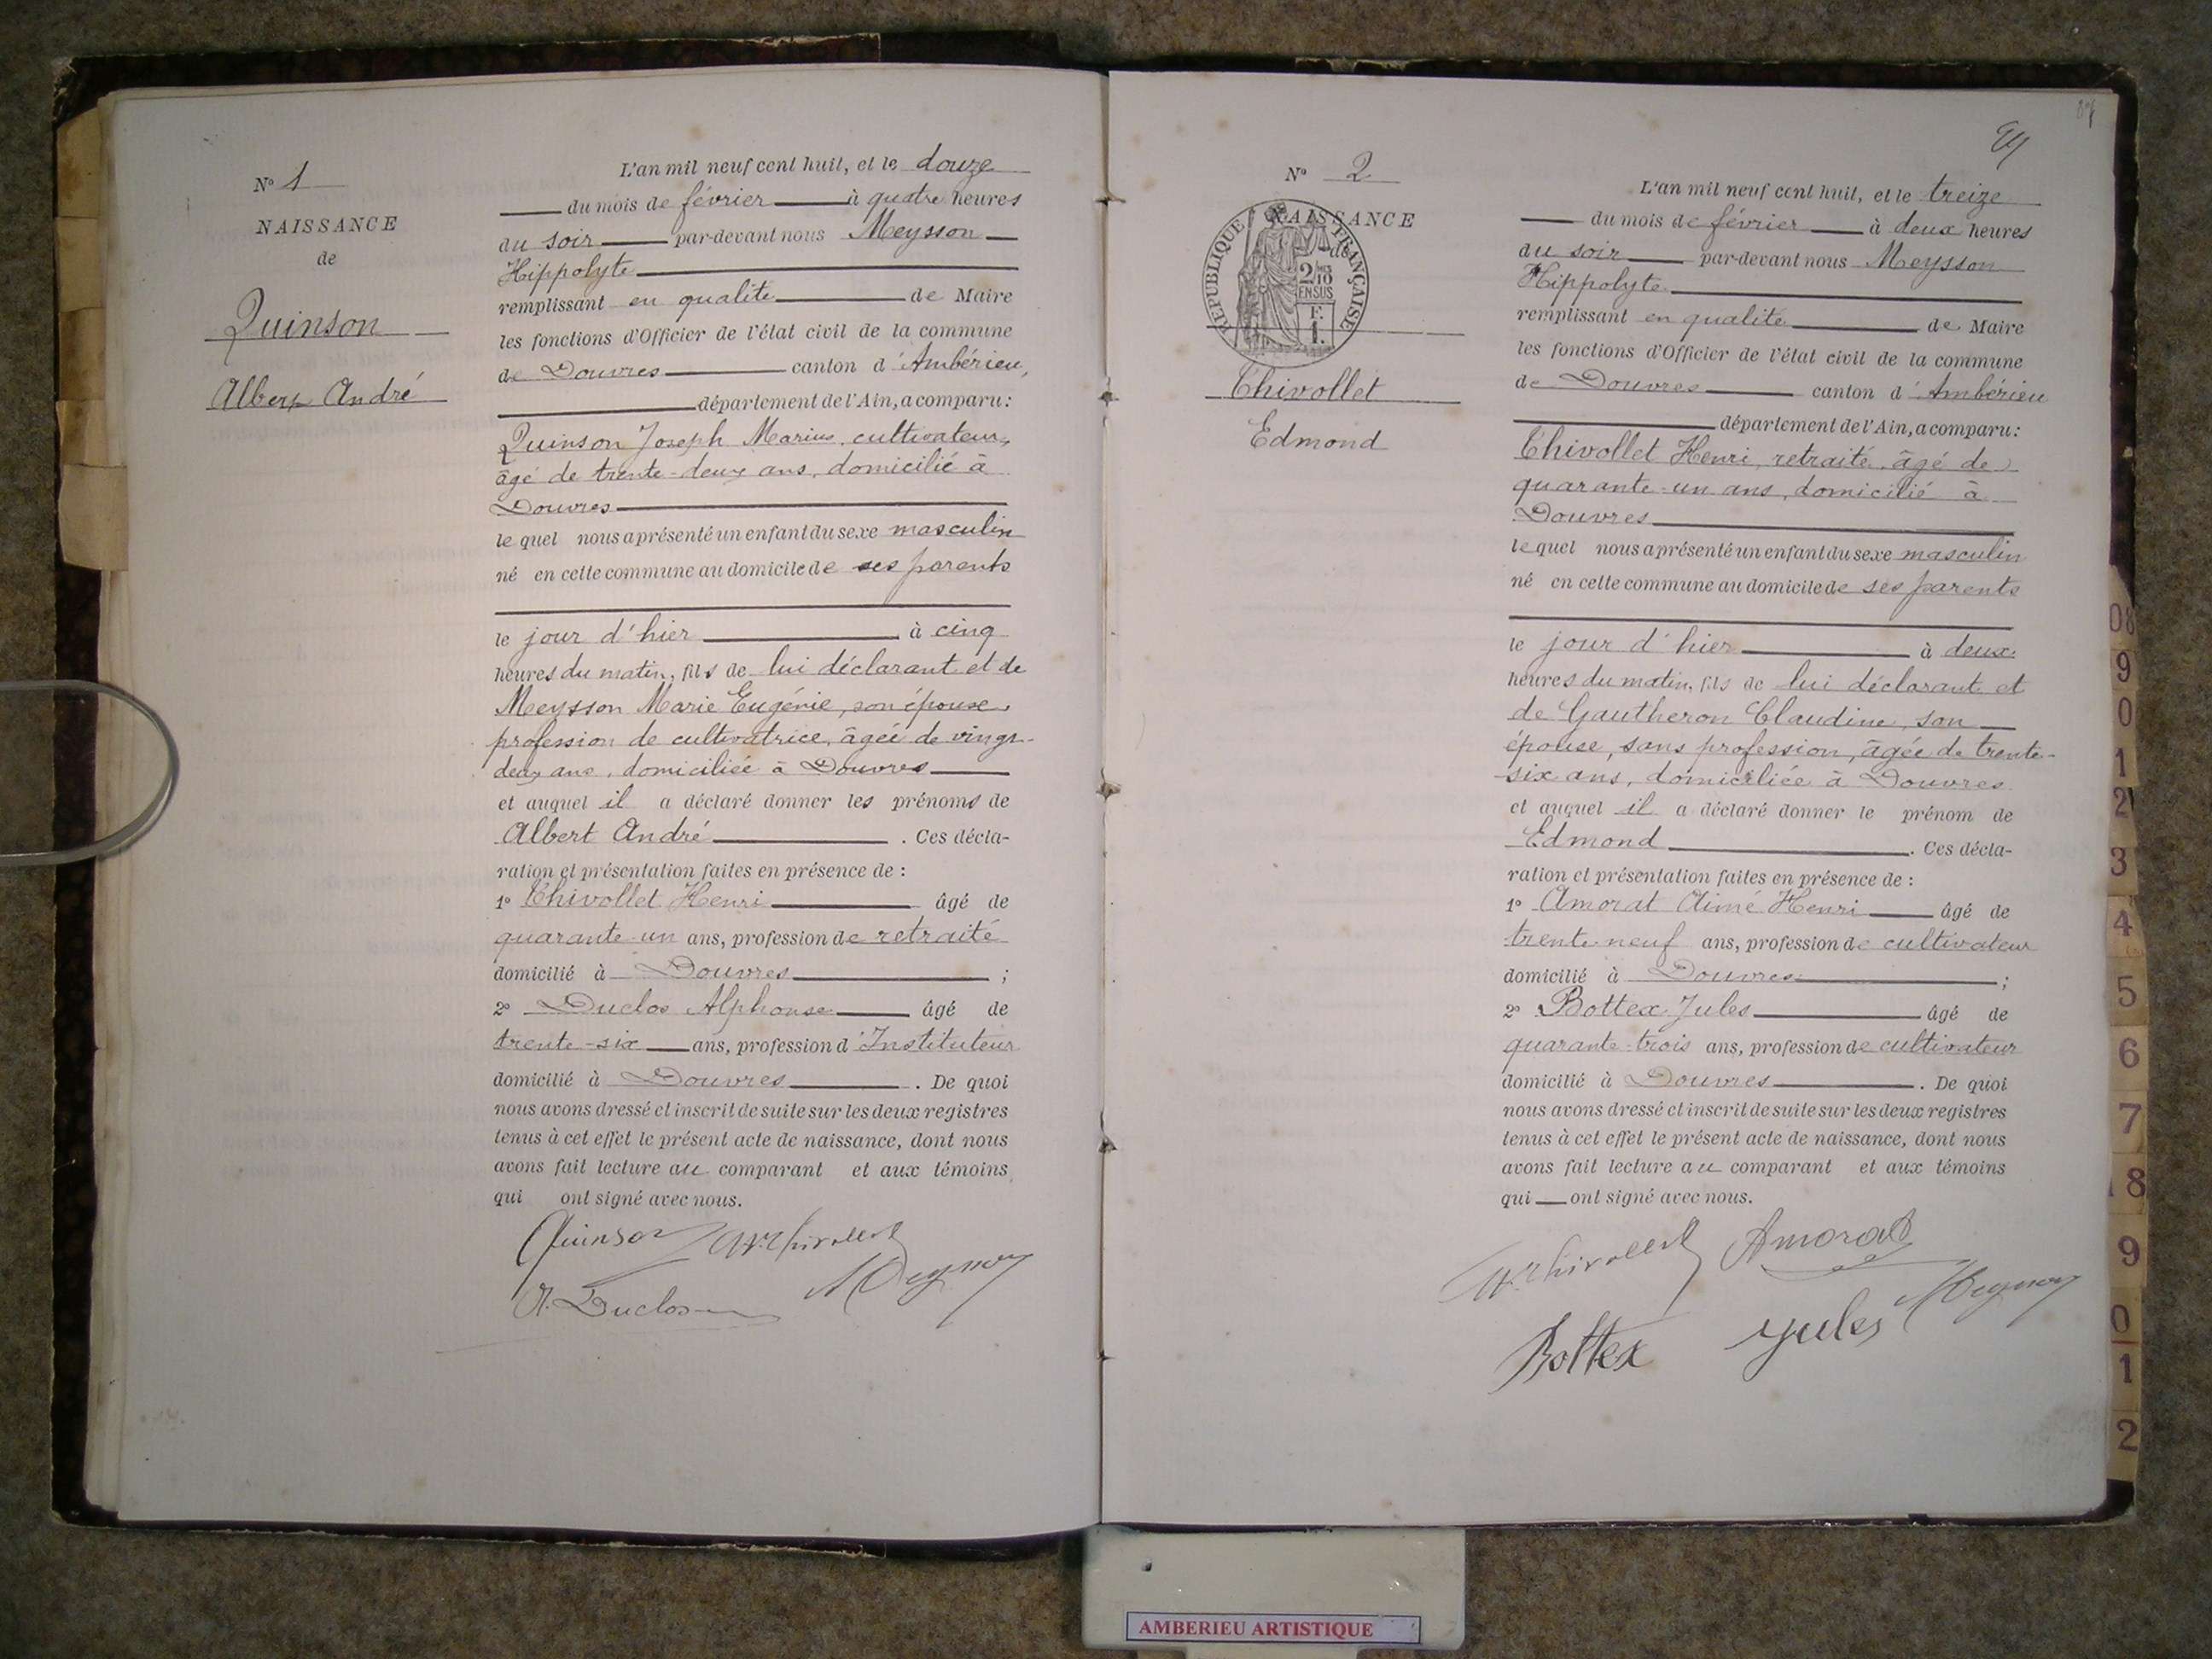 Nº 1
NAISSANCE
de
Quinson
Albert André
L'an mil neuf cent huit, et le douze
du mois de février à quatre heures
du soir par-devant nous Meysson
Hippolyte
remplissant en qualité de Maire
les fonctions d'Officier de l'état civil de la commune
de Douvres canton d'Ambérieu,
département de l'Ain, a comparu:
Quinson Joseph Marius, cultivateur,
âgé de trente-deux ans, domicilié à
Douvres
lequel nous a présenté un enfant du sexe masculin
né en cette commune au domicile de ses parents
le jour d'hier à cinq
heures du matin, fils de lui déclarant et de
Meysson Marie Eugénie, son épouse,
profession de cultivatrice, âgée de vingt-
deux ans, domiciliée à Douvres
et auquel il a déclaré donner les prénoms de
Albert André. Ces décla-
ration et présentation faites en présence de :
1º Thivollet Henri âgé de
quarante-un ans, profession de retraité
domicilié à Douvres ;
2º Duclos Alphonse âgé de
trente-six ans, profession d'Instituteur
domicilié à Douvres. De quoi
nous avons dressé et inscrit de suite sur les deux registres
tenus à cet effet le présent acte de naissance, dont nous
avons fait lecture au comparant et aux témoins
qui ont signé avec nous.
Quinson Hri Thivollet
A. Duclos Meysson
Nº 2
NAISSANCE
de
RÉPUBLIQUE FRANÇAISE
2/10
EN SUS
F.
1.
Thivollet
Edmond
L'an mil neuf cent huit, et le treize
du mois de février à deux heures
du soir par-devant nous Meysson
Hippolyte
remplissant en qualité de Maire
les fonctions d'Officier de l'état civil de la commune
de Douvres canton d'Ambérieu
département de l'Ain, a comparu:
Thivollet Henri, retraité, âgé de
quarante-un ans, domicilié à
Douvres
lequel nous a présenté un enfant du sexe masculin
né en cette commune au domicile de ses parents
le jour d'hier à deux
heures du matin, fils de lui déclarant et
de Gautheron Claudine, son
épouse, sans profession, âgée de trente-
six ans, domiciliée à Douvres
et auquel il a déclaré donner le prénom de
Edmond. Ces décla-
ration et présentation faites en présence de :
1º Amorat Aimé Henri âgé de
trente-neuf ans, profession de cultivateur
domicilié à Douvres ;
2º Bottex Jules âgé de
quarante-trois ans, profession de cultivateur
domicilié à Douvres. De quoi
nous avons dressé et inscrit de suite sur les deux registres
tenus à cet effet le présent acte de naissance, dont nous
avons fait lecture au comparant et aux témoins
qui ont signé avec nous.
Hri Thivollet Amorat
Bottex Jules Meysson
08
9
0
1
2
3
4
5
6
7
8
9
0
1
2
AMBERIEU ARTISTIQUE